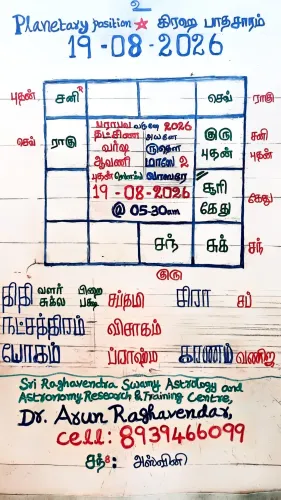 2
Planetary position ☆ கிரஹ பாதசாரம்
19-08-2026
புதன் சனி R செவ் ராகு
செவ் ராகு குரு புதன் சனி புதன்
பராபவ வருஷ 2026
தட்சிண அயனே
வர்ஷ ருதௌ
ஆவணி மாஸே 2
புதன் சௌம்ய வாஸரே
19-08-2026
@ 05-30am
சூரி கேது கேது
சந் சுக் சந்
குரு
திதி வளர் பிறை சுக்ல பக்ஷ சப்தமி திரா சப்
நட்சத்திரம் விசாகம்
யோகம் ப்ராஷ்ம காணம் வணிஜ
Sri Raghavendra Swamy Astrology and
Astronomy Research & Training Centre,
Dr. Arun Raghavendar,
Cell: 8939466099
சந் 8: அஸ்வினி